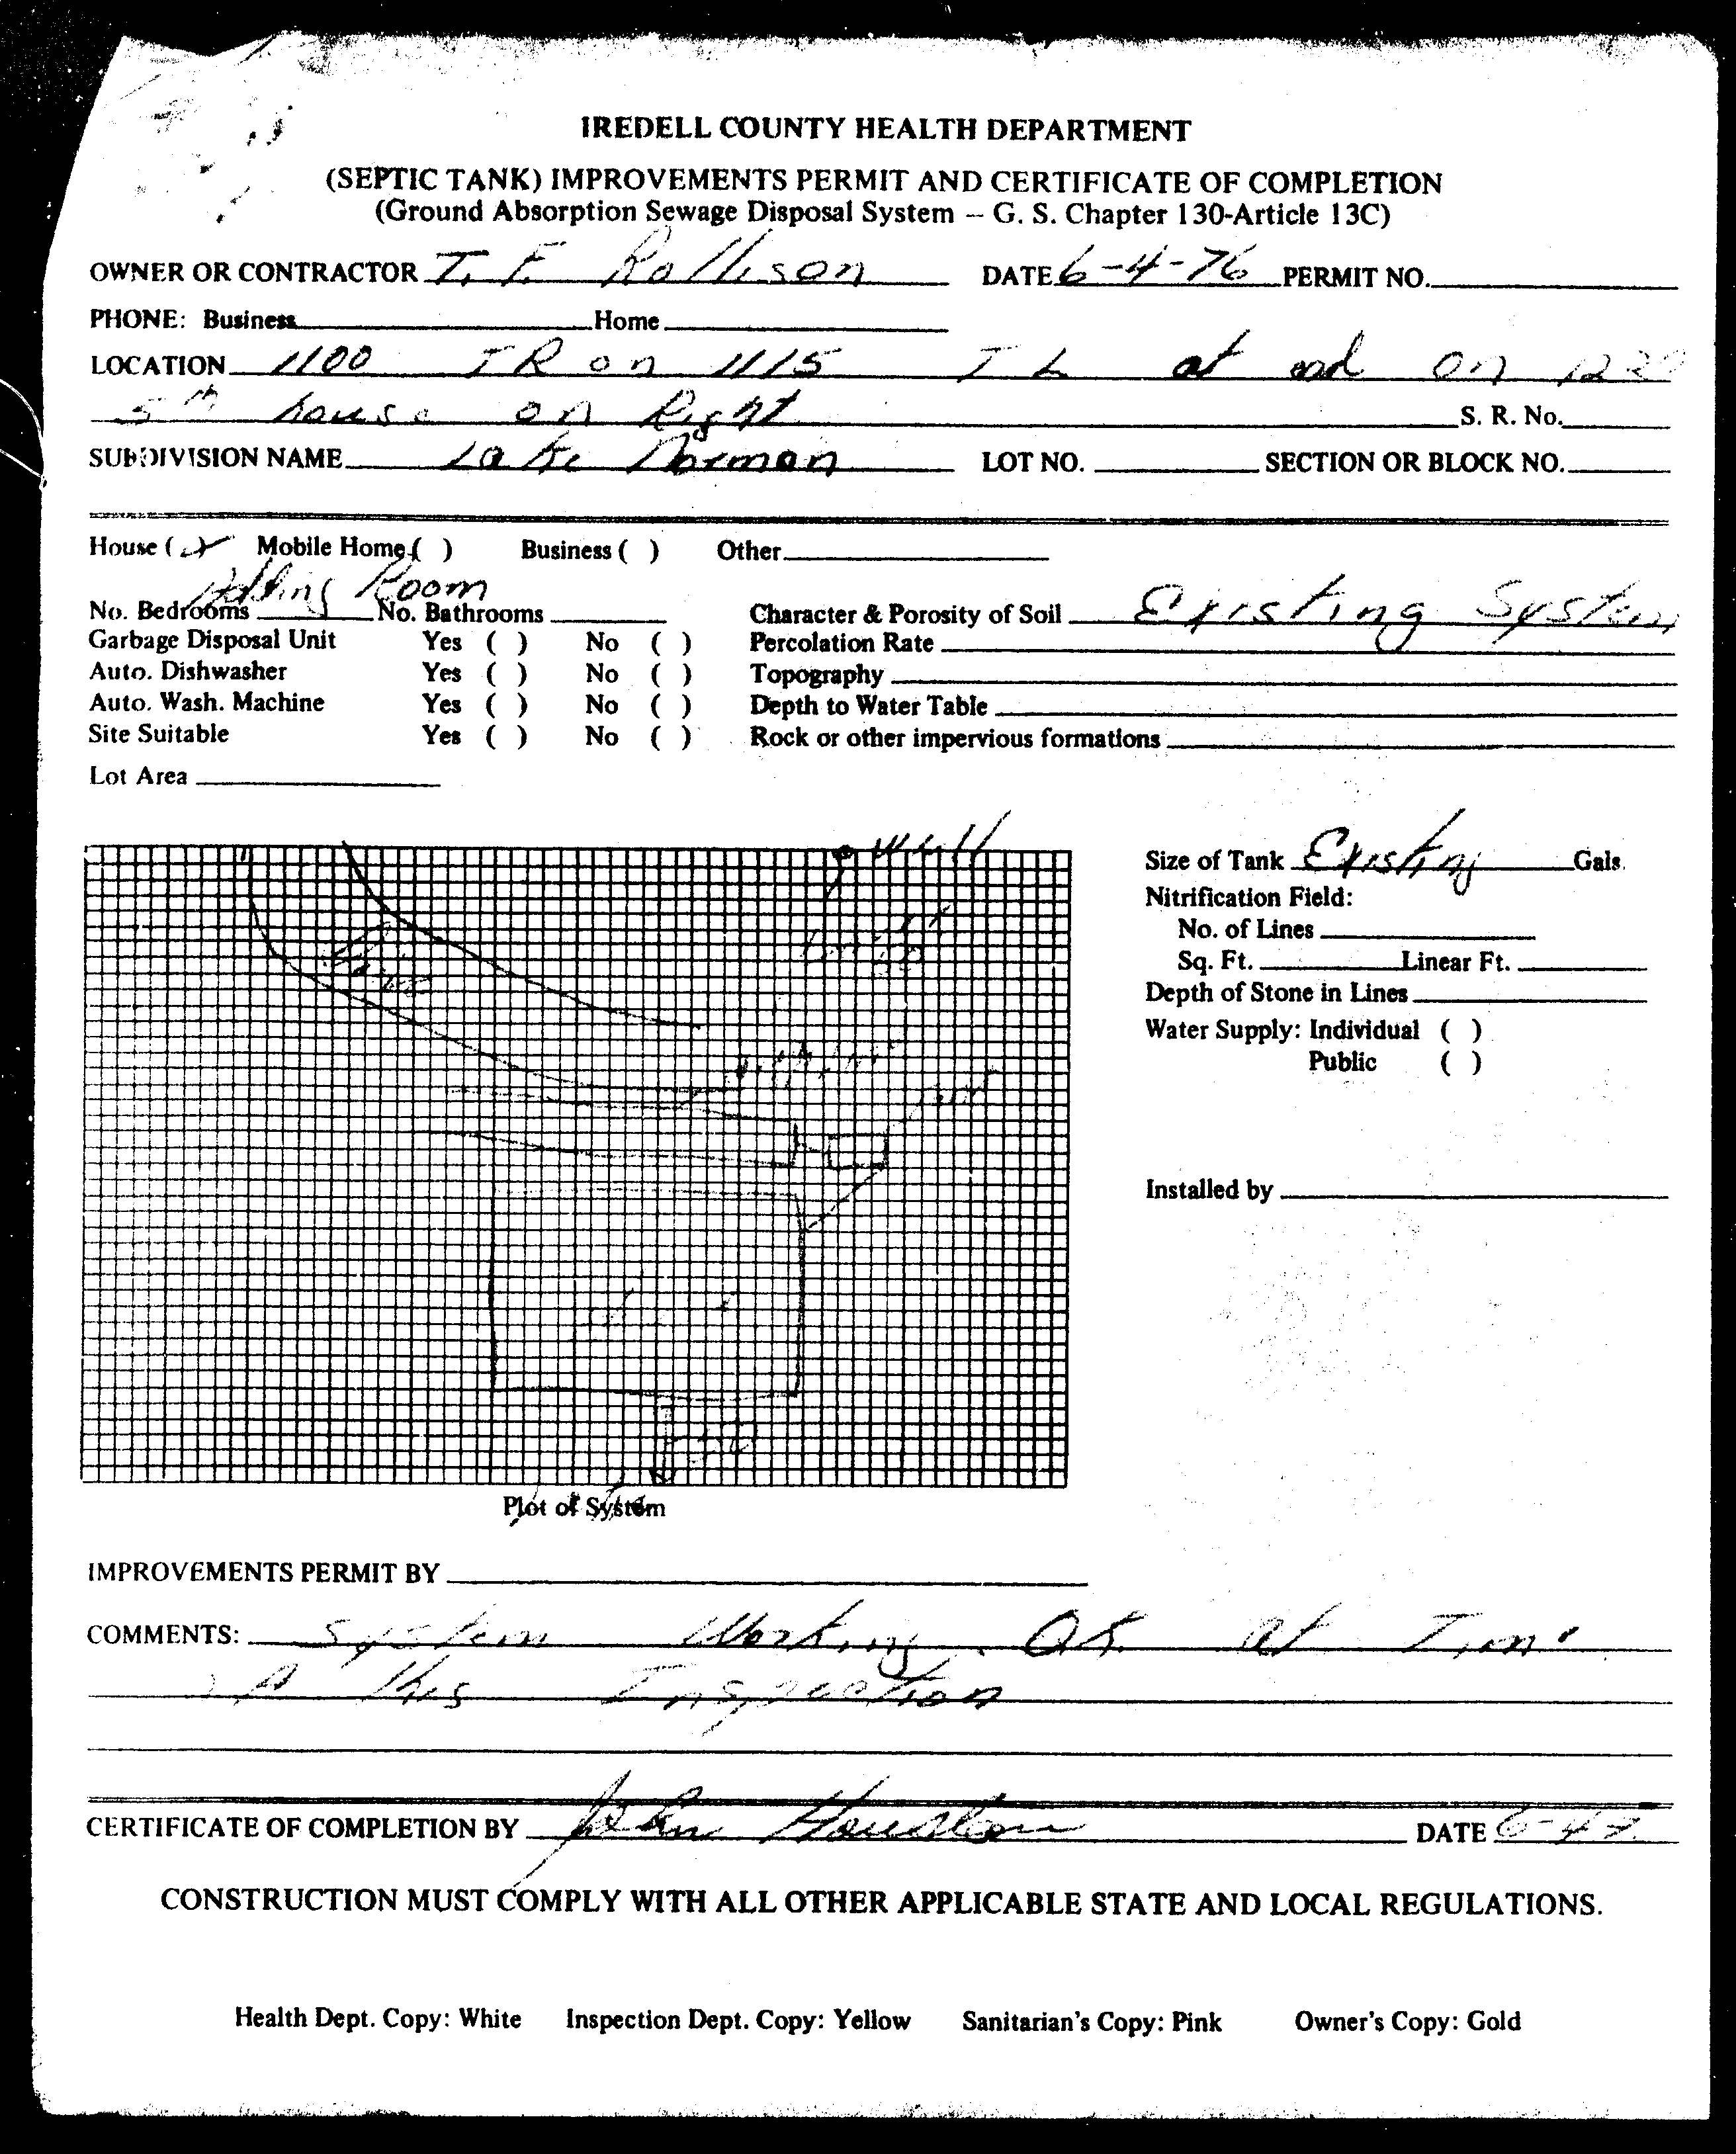 IREDELL COUNTY HEALTH DEPARTMENT
(SEPTIC TANK) IMPROVEMENTS PERMIT AND CERTIFICATE OF COMPLETION
(Ground Absorption Sewage Disposal System – G. S. Chapter 130-Article 13C)
OWNER OR CONTRACTOR T. F. Rollison DATE 6-4-76 PERMIT NO.
PHONE: Business Home
LOCATION 1100 TR on 1115 TL at end on
5th house on Right S. R. No.
SUBDIVISION NAME Lake Norman LOT NO. SECTION OR BLOCK NO.
House ( ) Mobile Home ( ) Business ( ) Other
Adding Room
No. Bedrooms No. Bathrooms Character & Porosity of Soil Existing System
Garbage Disposal Unit Yes ( ) No ( ) Percolation Rate
Auto. Dishwasher Yes ( ) No ( ) Topography
Auto. Wash. Machine Yes ( ) No ( ) Depth to Water Table
Site Suitable Yes ( ) No ( ) Rock or other impervious formations
Lot Area
well
Size of Tank Existing Gals.
Nitrification Field:
No. of Lines
Sq. Ft. Linear Ft.
Depth of Stone in Lines
Water Supply: Individual ( )
Public ( )
Installed by
Plot of System
IMPROVEMENTS PERMIT BY
COMMENTS: System Working OK at Time
this Inspection
CERTIFICATE OF COMPLETION BY John Houston DATE
CONSTRUCTION MUST COMPLY WITH ALL OTHER APPLICABLE STATE AND LOCAL REGULATIONS.
Health Dept. Copy: White Inspection Dept. Copy: Yellow Sanitarian's Copy: Pink Owner's Copy: Gold